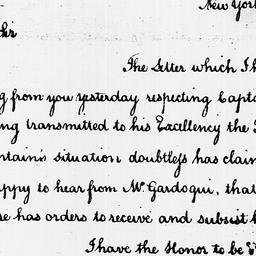 New York
Sir
The Letter which I h
g from you yesterday respecting Capta
ng transmitted to his Excellency the
ntain's situation doubtless has claim
appy to hear from Mr. Gardoqui, that
se has orders to receive and subsist
I have the Honor to be